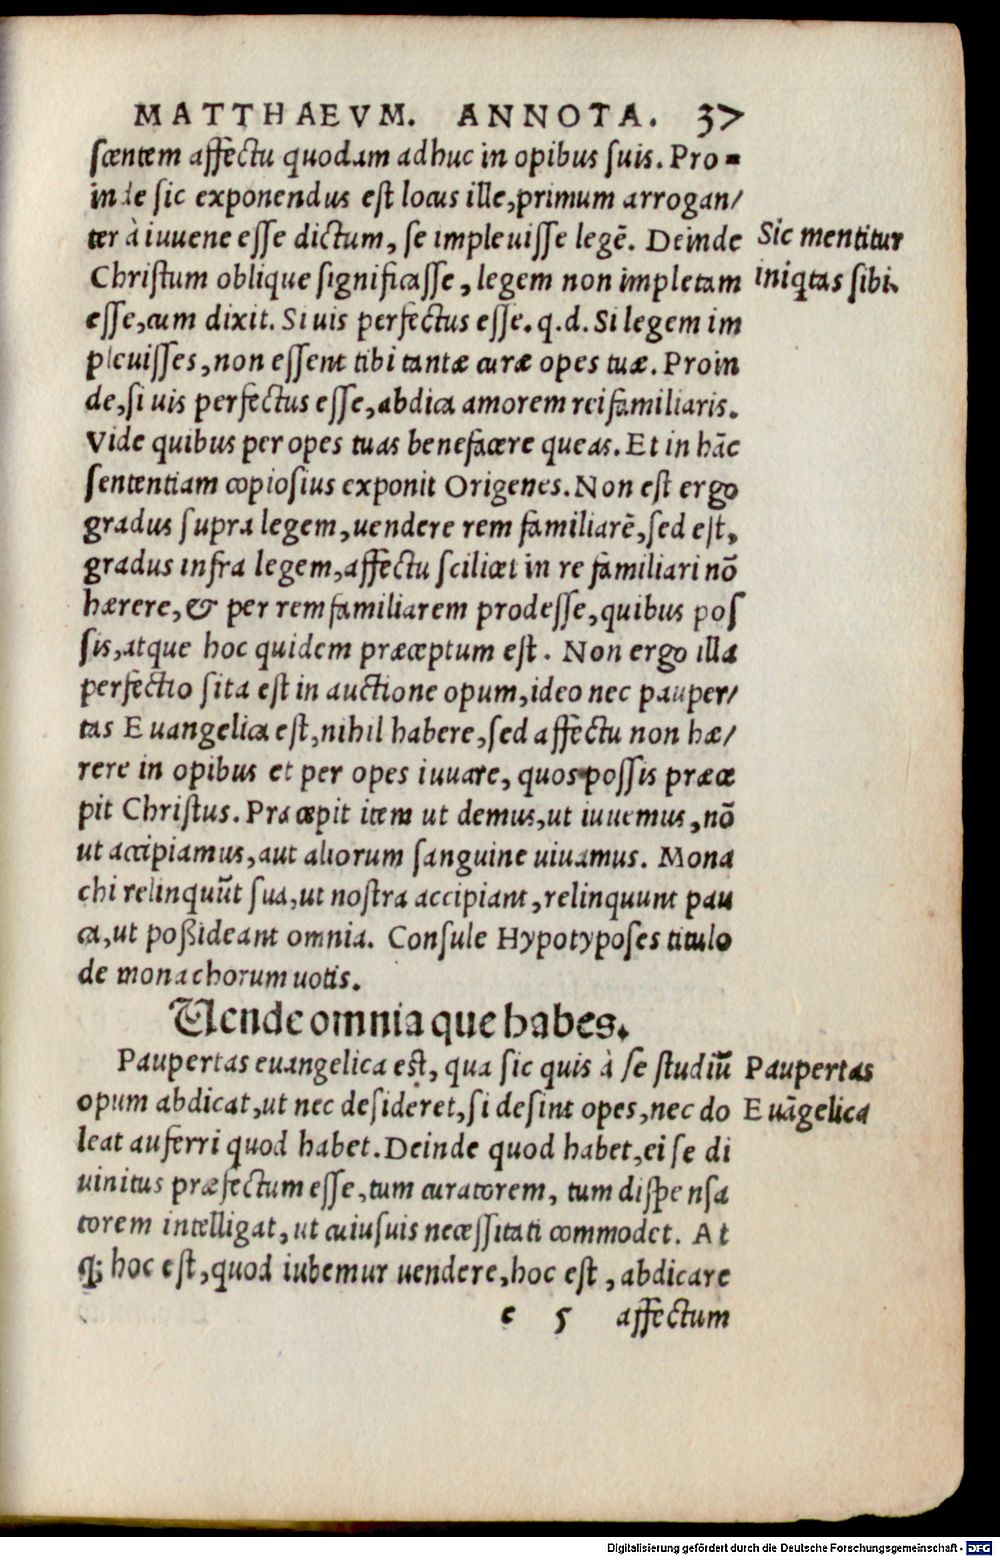 MATTHAEVM. ANNOTA. 37
scentem affectu quodam adhuc in opibus suis. Pro-
inde sic exponendus est locus ille, primum arrogan/
ter à iuuene esse dictum, se impleuisse legē. Deinde
Sic mentitur
Christum oblique significasse, legem non impletam
iniqtas sibi.
esse, cum dixit. Si uis perfectus esse. q.d. Si legem im
pleuisses, non essent tibi tantæ curæ opes tuæ. Proin
de, si uis perfectus esse, abdica amorem rei familiaris.
Vide quibus per opes tuas benefacere queas. Et in hāc
sententiam copiosius exponit Origenes. Non est ergo
gradus supra legem, uendere rem familiarē, sed est,
gradus infra legem, affectu scilicet in re familiari nō
hærere, & per rem familiarem prodesse, quibus pos
sis, atque hoc quidem præceptum est. Non ergo illa
perfectio sita est in auctione opum, ideo nec pauper/
tas Euangelica est, nihil habere, sed affectu non hæ/
rere in opibus et per opes iuuare, quos possis præce
pit Christus. Præcepit item ut demus, ut iuuemus, nō
ut accipiamus, aut aliorum sanguine uiuamus. Mona
chi relinquūt sua, ut nostra accipiant, relinquunt pau
ca, ut possideant omnia. Consule Hypotyposes titulo
de monachorum uotis.
Uende omnia que habes.
Paupertas euangelica est, qua sic quis à se studiū
Paupertas
opum abdicat, ut nec desideret, si desint opes, nec do
Euāgelica
leat auferri quod habet. Deinde quod habet, ei se di
uinitus præfectum esse, tum curatorem, tum dispensa
torem intelligat, ut cuiusuis necessitati commodet. At
q; hoc est, quod iubemur uendere, hoc est, abdicare
e 5 affectum
Digitalisierung gefördert durch die Deutsche Forschungsgemeinschaft - DFG